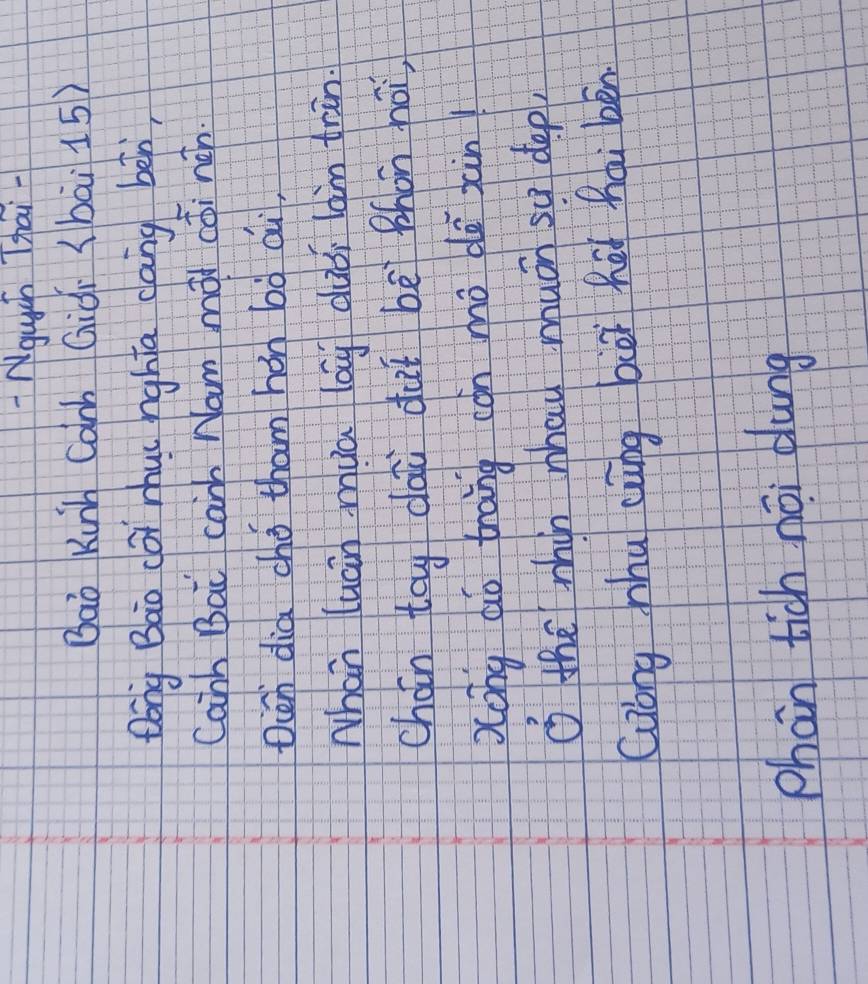 - Nguyễn Trãi -
Bảo Kính Cảnh Giới <bài 15>
Đồng Bào cốt nhục nghĩa càng bền,
Cành Bắc cành Nam một cỗi nên.
Điền địa chớ tham hơn bỏ ải,
Nhân luân mựa lấy dưới làm trên.
Chân tay dầu đứt bề khôn nối,
Xống áo tràng còn mô dễ xin!
Ở thế nhịn nhau muôn sự đẹp,
Cương nhu cũng biết hết hai bên.
Phân tích nội dung